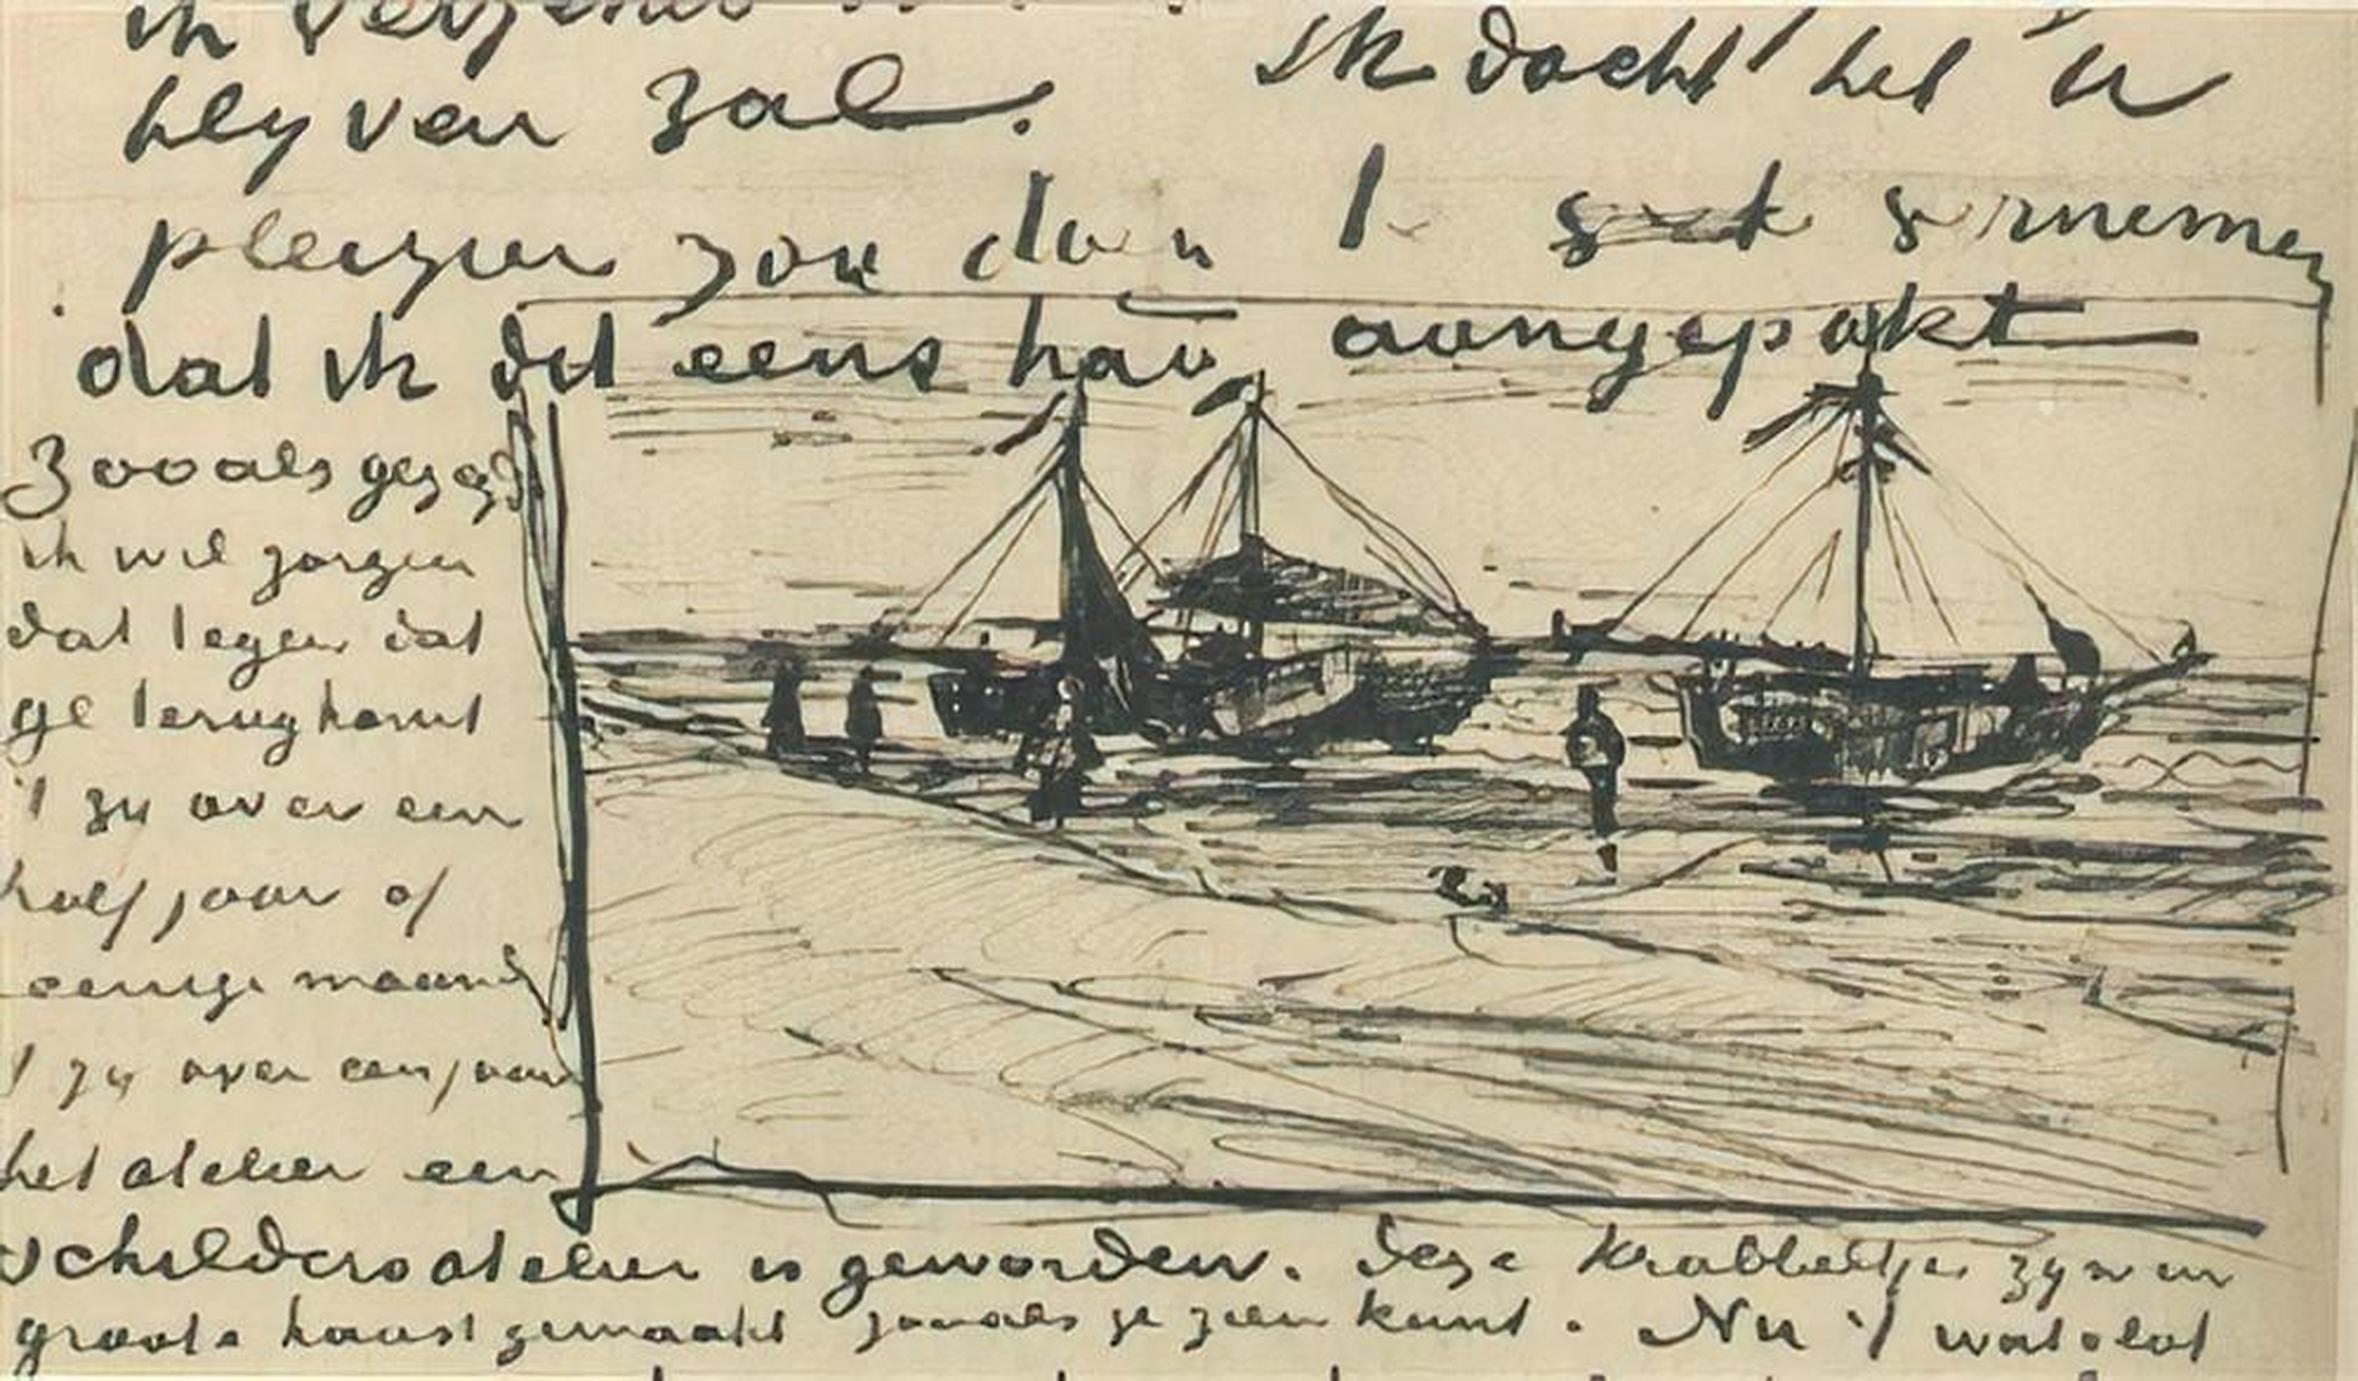 ik
blyven zal. Ik dacht het U
pleizier zou doen
dat ik dit eens had aangepakt
Zooals gezegd
ik wil zorgen
dat tegen dat
ge terugkomt
't zy over een
half jaar of
eenige maand
't zy over een jaar
het atelier een
schildersatelier is geworden. Deze krabbeltjes zyn in
groote haast gemaakt zooals ge zien kunt. Nu 't wat vlot